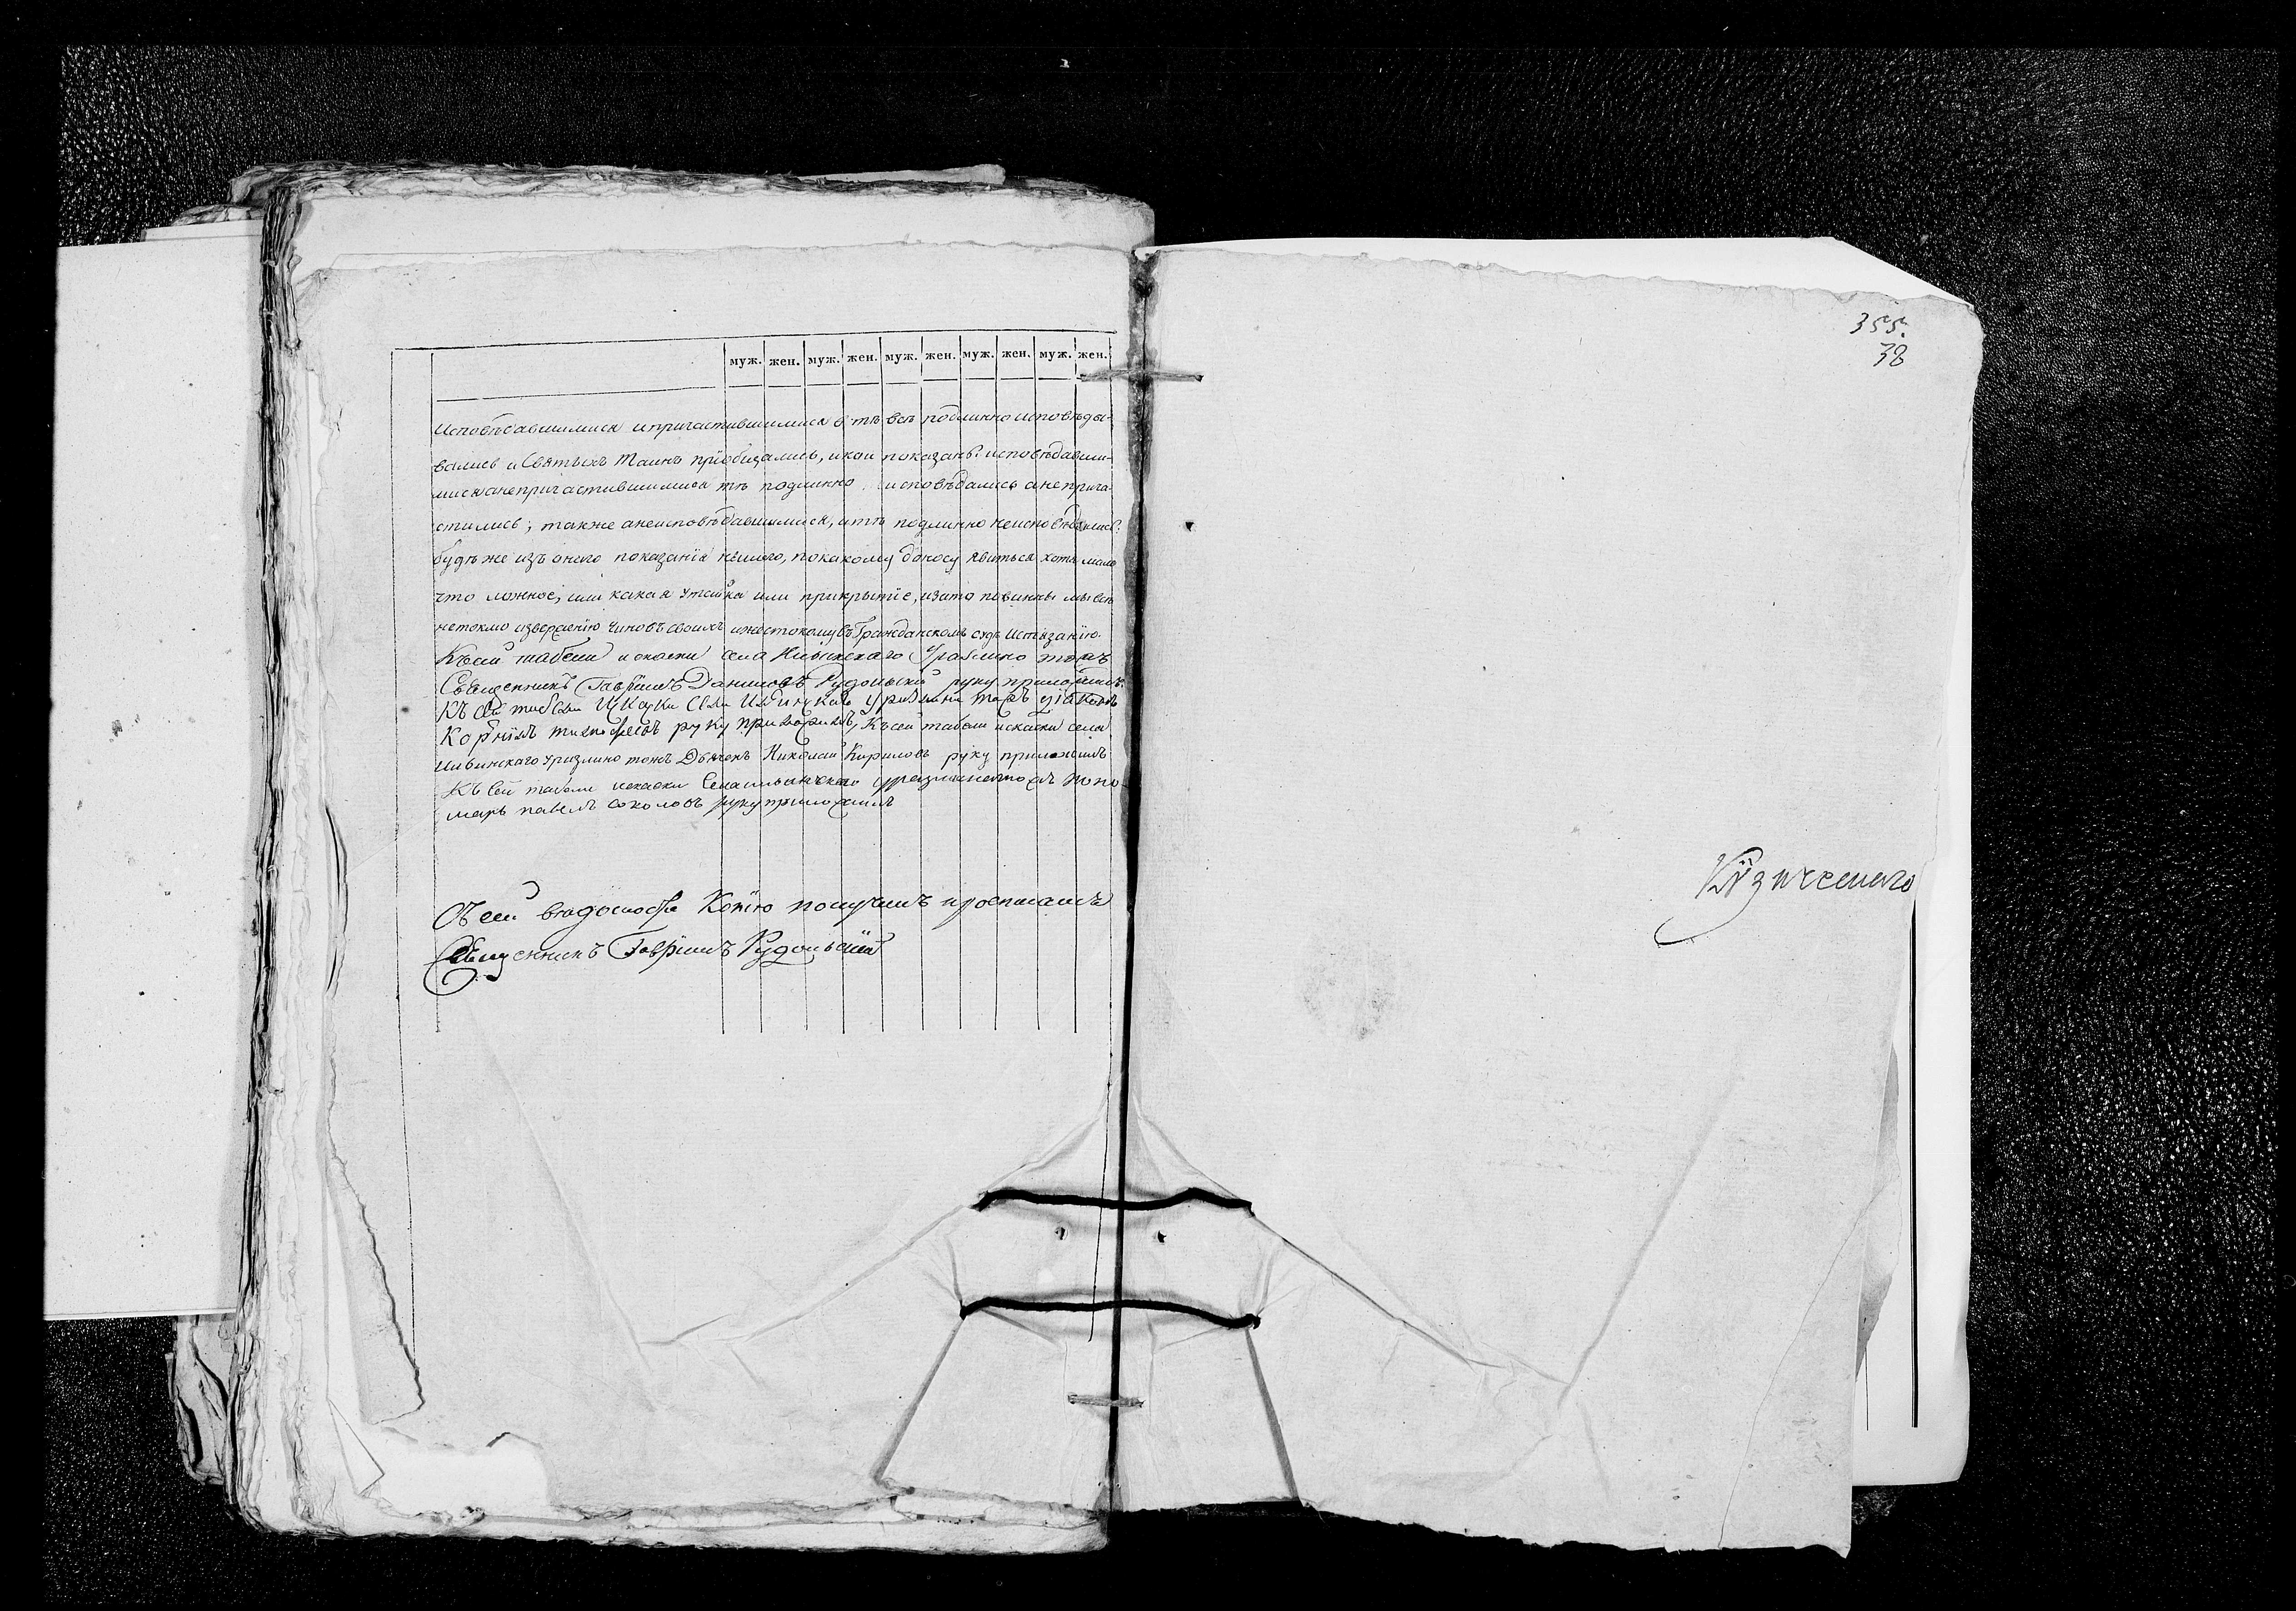 муж. жен. муж. жен. муж. жен. муж. жен. муж. жен.
исповѣдавшимися и причастившимися тѣ всѣ подлинно исповѣды-
вались и Святыхъ Таинъ прїобщались, и кои показаны исповѣдавши-
мися анепричастившимися тѣ подлинно исповѣдались анеприча-
стились; также анеисповѣдавшимися, итѣ подлинно неисповѣдались:
будѣ же изъ онаго показанїя нашего, покакому доносу явиться хотя мало
что ложное, или какая утайка или прикрытїе, изато повинны мы всѣ
нетокмо изверженїю чиновъ своихъ ижестокому въ Гражданскомъ судѣ истязанїю.
Късей табели и скаски села Ильинскаго тожъ
Священникъ Гаврїилъ Даниловъ Рудольскїй руку приложилъ.
Къ сей табели Искаски Села Илинскаго тожъ дїаконъ
Корнїлъ руку приложилъ, Късей табели искаски села
Илвинскаго тожъ Дьячекъ Николай Кириловъ руку приложилъ
Къ сей табели искаски Села тожъ поно-
марь павелъ соколовъ руку приложилъ
Съ сей вѣдомости Копїю получилъ и росписался
Священникъ Гаврїилъ Рудольскїй
355.
38